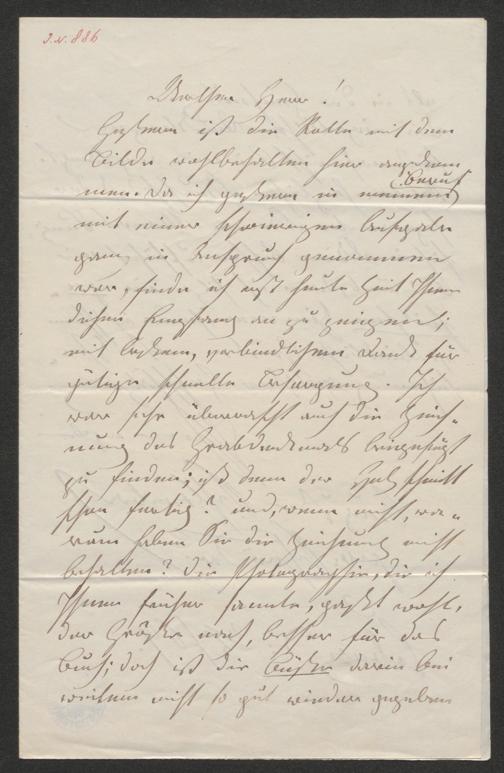 J.N. 886
Herr!
Gestern ist die Rolle mit dem
Bilde wohlbehalten hier angekom
men. Da ich gestern in meinem
Beruf
mit einer schwierigen Aufgabe
ganz in Anspruch genommen
war, finde ich erst heute Zeit Ihnen
diesen Empfang anzuzeigen;
mit bestem, verbindlichem Dank für
gütige schnelle Besorgung. Ich
war sehr überrascht auch die Zeich-
nung des Grabdenkmals beigefügt
zu finden; ist denn der Holzschnitt
schon fertig? und, wenn nicht, wa-
rum haben Sie die Zeichnung nicht
behalten? Die Photographie, die ich
Ihnen früher sandte, paßt wohl,
der Größe nach, besser für das
Buch; doch ist die Büste darin bei
weitem nicht so gut wieder gegeben